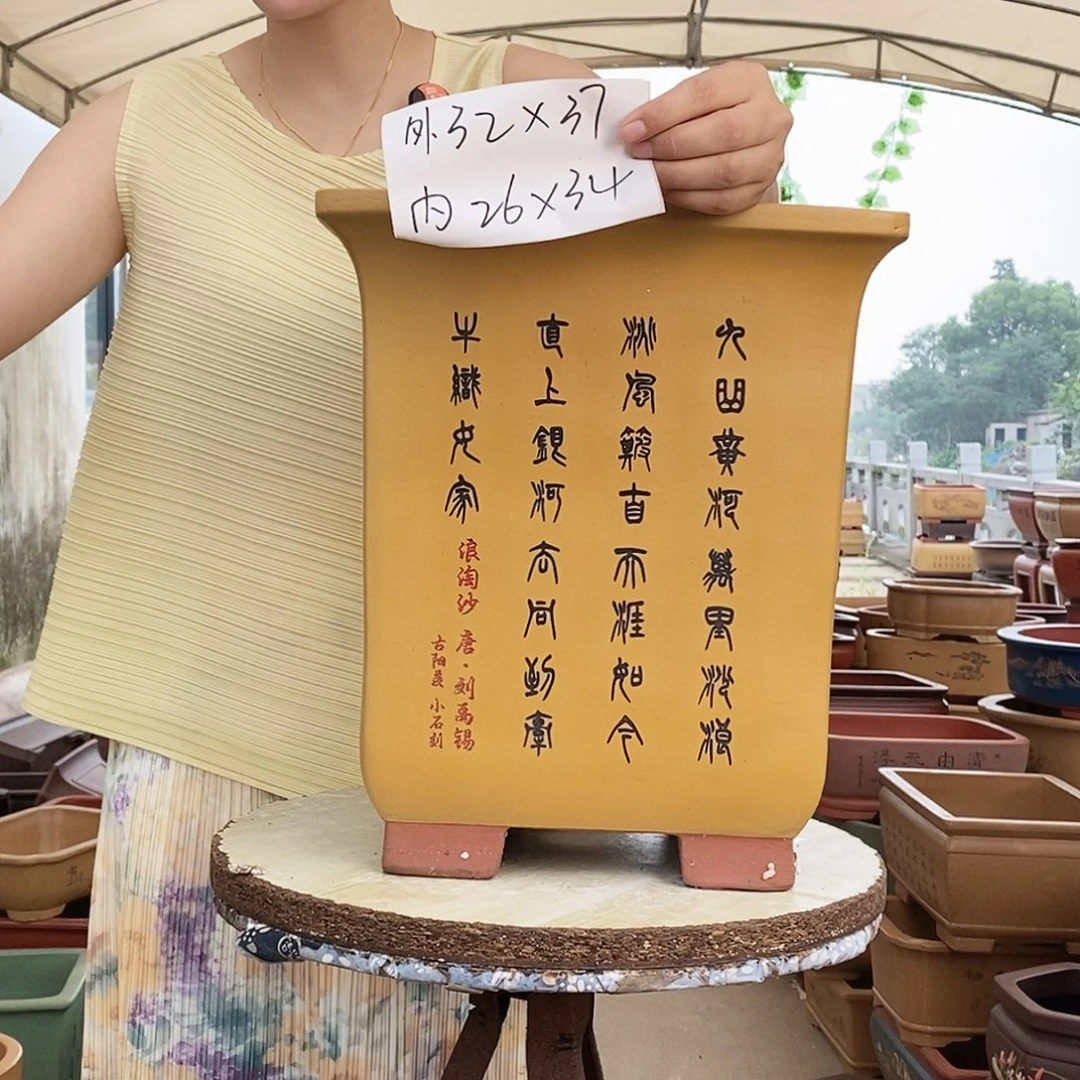 外32×37
内26×34
九曲黃河萬里沙浪
淘風簸自天涯如今
直上銀河去同到牽
牛織女家
浪淘沙 唐·刘禹锡
古阳羡 小石刻